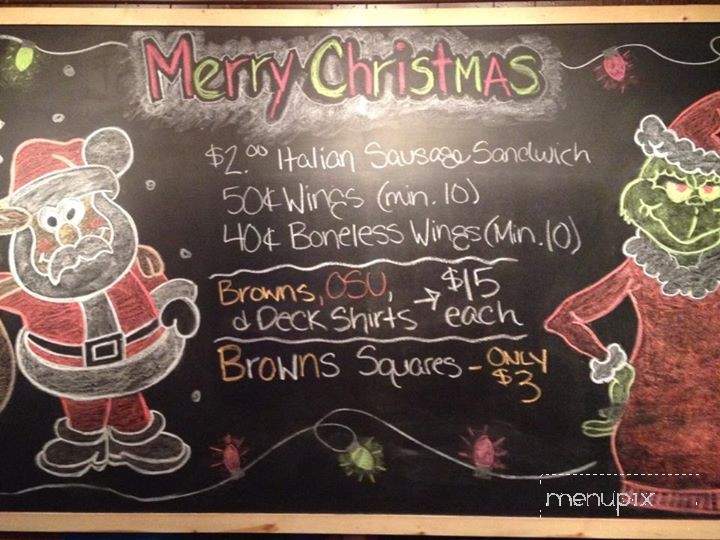 Merry Christmas
$2.00 Italian Sausage Sandwich
50¢ Wings (min. 10)
40¢ Boneless Wings (Min. 10)
Browns, OSU,
& Deck Shirts → $15 each
Browns Squares - ONLY $3
menupix